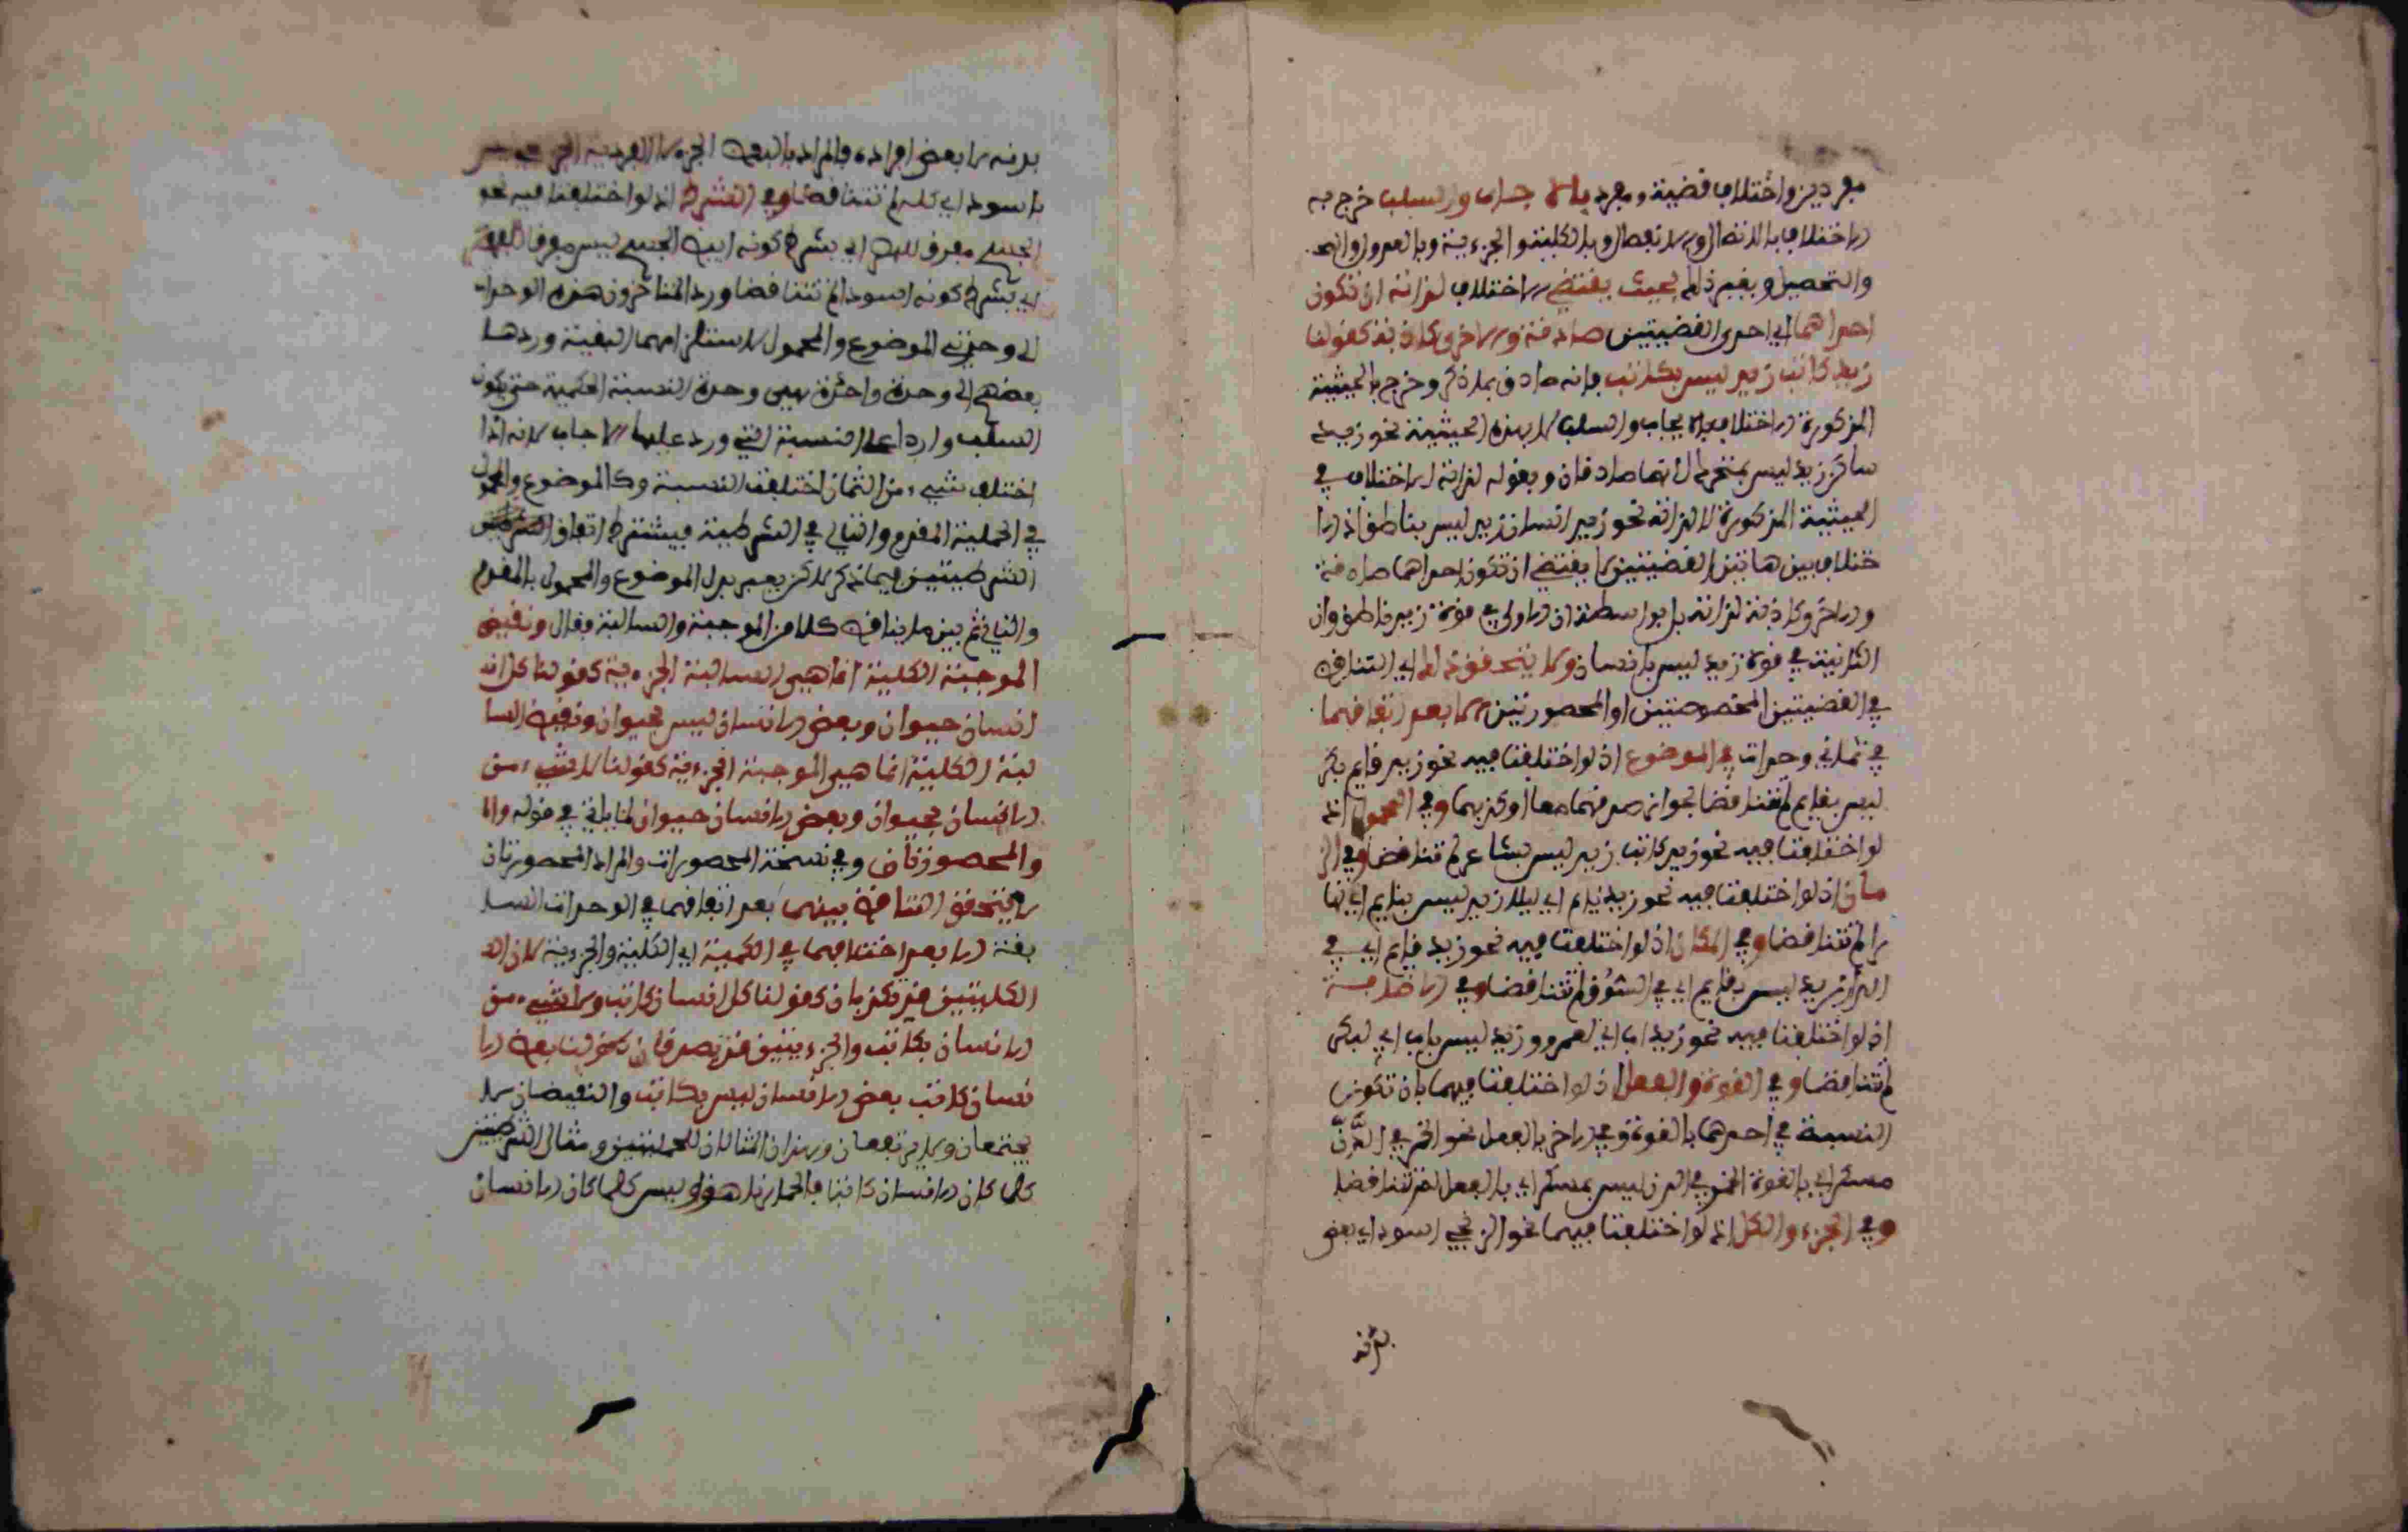 مفردين واختلاف قضية ومفرد بالايجاب والسلب خرج به
الاختلاف بالاتصال والانفصال وبالكلية والجزءية وبالعدول
والتحصيل وبغير ذلك بحيث يقتضي الاختلاف لذاته ان تكون
احداهما اي احدى القضيتين صادقة والاخرى كاذبة كقولنا
زيد كاتب زيد ليس بكاتب فانه صادق بما ذكر وخرج بالحيثية
المذكورة الاختلاف بالايجاب والسلب لا بهذه الحيثية نحو زيد
ساكن زيد ليس بمتحرك لانهما صادقان وبقوله لذاته الاختلاف في
الحيثية المذكورة لا لذاته نحو زيد انسان زيد ليس بناطق اذ الا
ختلاف بين هاتين القضيتين لا يقتضي ان تكون احداهما صادقة
والاخرى كاذبة لذاته بل بواسطة ان الاولى في قوة زيد ناطق وان
الثانية في قوة زيد ليس بانسان ولا يتحقق ذلك اي التناقض
في القضيتين المخصوصتين او المحصورتين الا بعد اتفاقهما
في ثماني وحدات في الموضوع اذ لو اختلفتا فيه نحو زيد قايم بكر
ليس بقايم لم تتناقضا لجواز صدقهما معا او كذبهما وفي المحمول اذ
لو اختلفتا فيه نحو زيد كاتب زيد ليس بشاعر لم تتناقضا وفي الز
مان اذ لو اختلفتا فيه نحو زيد نايم اي ليلا زيد ليس بنايم اي نها
را لم تتناقضا وفي المكان اذ لو اختلفتا فيه نحو زيد قايم اي في
الدار زيد ليس بقايم اي في السوق لم تتناقضا وفي الاضافة
اذ لو اختلفتا فيه نحو زيد اب اي لعمرو وزيد ليس باب اي لبكر
لم تتناقضا وفي القوة والفعل اذ لو اختلفتا فيهما بان تكون
النسبة في احدهما بالقوة وفي الاخر بالفعل نحو الخمر في الدَّنِّ
مسكر اي بالقوة الخمر في الدن ليس بمسكر اي بالفعل لم تتناقضا
وفي الجزء والكل اذ لو اختلفتا فيهما نحو الزنجي اسود اي بعض
بدنه لا بعض افراده والمراد بالبعض الجزء لا الفردية الزنجي ليس
باسود اي كله لم تتناقضا وفي الشرط اذ لو اختلفتا فيه نحو
الجسم مفرق للبصر اي بشرط كونه ابيض الجسم ليس مفرقا للبصر
اي بشرط كونه اسود لم تتناقضا ورد المتاخرون هذه الوحدات
الى وحدتي الموضوع والمحمول لاستلزامهما البقية وردها
بعضهم الى وحدة واحدة وهي وحدة النسبة الحكمية حتى يكون
السلب واردا على النسبة التي ورد عليها الايجاب لانه اذا
اختلف شيء من الثمان اختلفت النسبة وكالموضوع والمحمول
في الحملية المقدم والتالي في الشرطية فيشترط اتفاق
الشرطيتين فيما ذكر لاكن يعبر بدل الموضوع والمحمول بالمقدم
والتالي ثم بين ما يناقض كلا من الموجبة والسالبة فقال ونقيض
الموجبة الكلية انما هي السالبة الجزءية كقولنا كل
انسان حيوان وبعض الانسان ليس بحيوان ونقيض السا
لبة الكلية انما هي الموجبة الجزءية كقولنا لا شيء من
الانسان بحيوان وبعض الانسان حيوان لما ياتي في قوله
والمحصورتان وفي نسخة المحصورات والمراد المحصورتان
لا يتحقق التناقض بينهما بعد اتفاقهما في الوحدات السا
بقة الا بعد اختلافهما في الكمية اي الكلية والجزءية لان
الكليتين قد تكذبان كقولنا كل انسان كاتب ولا شيء من
الانسان بكاتب والجزءيتين قد تصدقان كقولنا بعض الا
نسان كاتب بعض الانسان ليس بكاتب والنقيضان لا
يجتمعان ولا يرتفعان وهذان المثالان للحمليتين ومثال الشرطيتين
كلما كان الانسان كاتبا فالحمار ناهق وليس كلما كان الانسان
بدنه